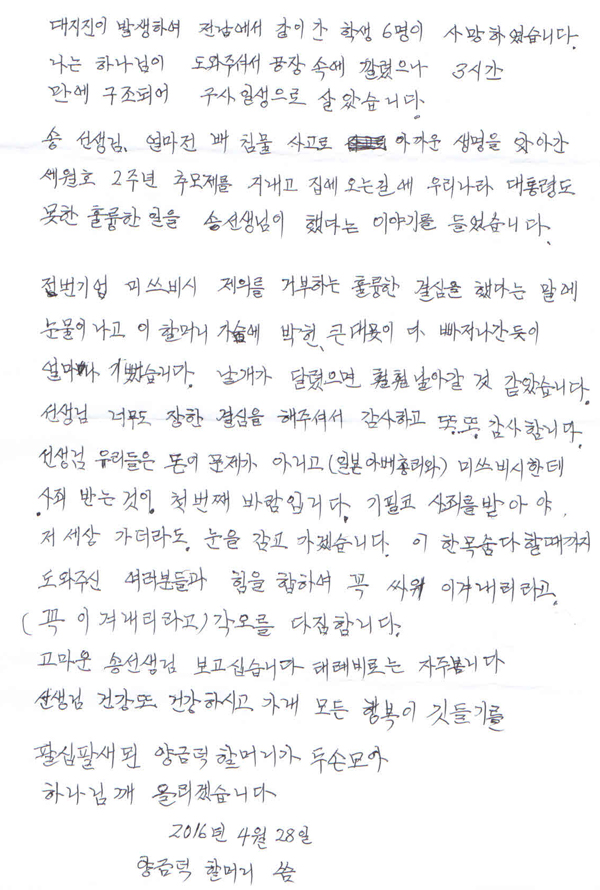 대지진이 발생하여 전남에서 같이 간 학생 6명이 사망하였습니다.
나는 하나님이 도와주셔서 공장 속에 깔렸으나 3시간
만에 구조되어 구사일생으로 살았습니다.
송 선생님, 얼마전 배 침몰 사고로 아까운 생명을 앗아간
세월호 2주년 추모제를 지내고 집에 오는길에 우리나라 대통령도
못한 훌륭한 일을 송선생님이 했다는 이야기를 들었습니다.
전번기업 미쓰비시 제의를 거부하는 훌륭한 결심을 했다는 말에
눈물이 나고 이 할머니 가슴에 박힌, 큰대못이 다 빠저나간듯이
얼마나 기뻤습니다. 날개가 달렸으면 훨훨 날아갈 것 같았습니다.
선생님 너무도 장한 결심을 해주셔서 감사하고 또,또, 감사합니다.
선생님 우리들은 돈이 문제가 아니고 (일본 아베총리와) 미쓰비시한데
사죄 받는 것이 첫번째 바람입니다. 기필코 사죄를 받아야,
저 세상 가더라도, 눈을 감고 가겠습니다. 이 한목숨 다 할때까지
도와주신 여러분들과 힘을 합하여 꼭 싸워 이겨내리라고,
(꼭 이겨내리라고) 각오를 다집합니다.
고마운 송선생님 보고십습니다 태레비로는 자주봅니다
선생님 건강또 건강하시고 가개 모든 행복이 깃들기를
팔십팔새된 양금덕 할머니가 두손모아
하나님깨 올리겠습니다
2016년 4월 28일
양금덕 할머니 씀